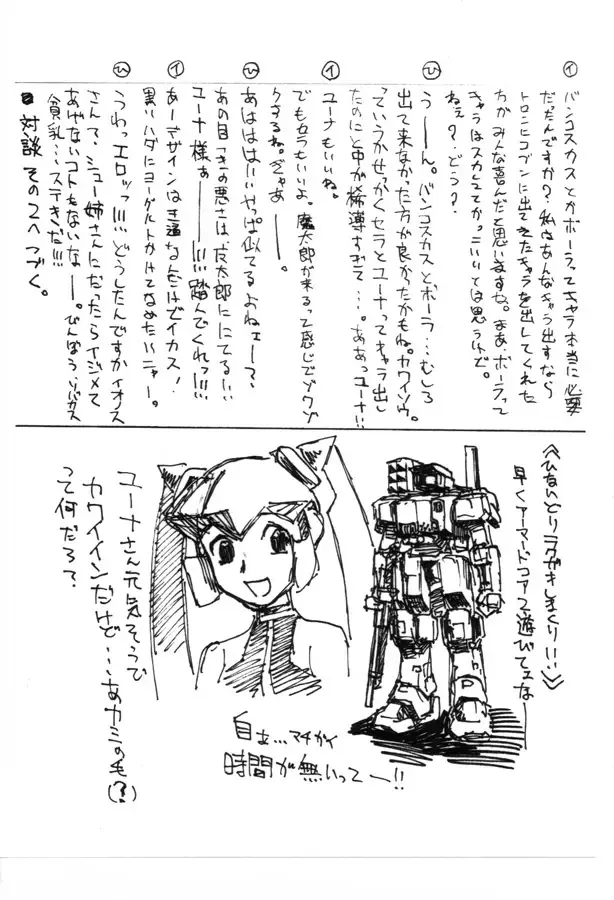 イ
バンコスカスとかポーラってキャラ本当に必要
だったんですか？私はあんなキャラ出すなら
トロンにコブンに出てきたキャラを出してくれた
方がみんな喜んだと思いますね。まあ、ポーラって
キャラはスカしてかっこいいとは思うけど。
ねぇ？どう？
ひ
うーん。バンコスカスとポーラ…むしろ
出て来なかった方が良かったかもね。カワイソウ。
っていうかせっかくセラとユーナってキャラ出し
たのにと中が稀薄すぎて…。ああっユーナ!!
イ
ユーナもいいね。
でもセラもいいよ。魔太郎が来るって感じでゾクゾ
クするね。ぎゃあーー。
ひ
あはははいやっぱ似てるよねェー？
あの目つきの悪さは、魔太郎ににてる!!
ユーナ様ぁーー!!!踏んでくれっ!!!
イ
あーデザインは普通なんだけどイカス！
黒いハダにヨーグルトかけてなめたいニャー。
ひ
うわっエロッッ!!!どうしたんですかイオス
さんて、シュー姉さんにだったらイジメて
あげないコトもないなー。でんぼう、ソバカス
貧乳…ステきだ!!!
■対談その2へつづく。
《ひないどりラクガキしまくり!!》
早くアーマードコア2遊びてェなー
ユーナさん元気そうで
カワイインだけど…あのカミの毛(?)
って何だろ？
自ま…マチガイ
時間が無いってー!!